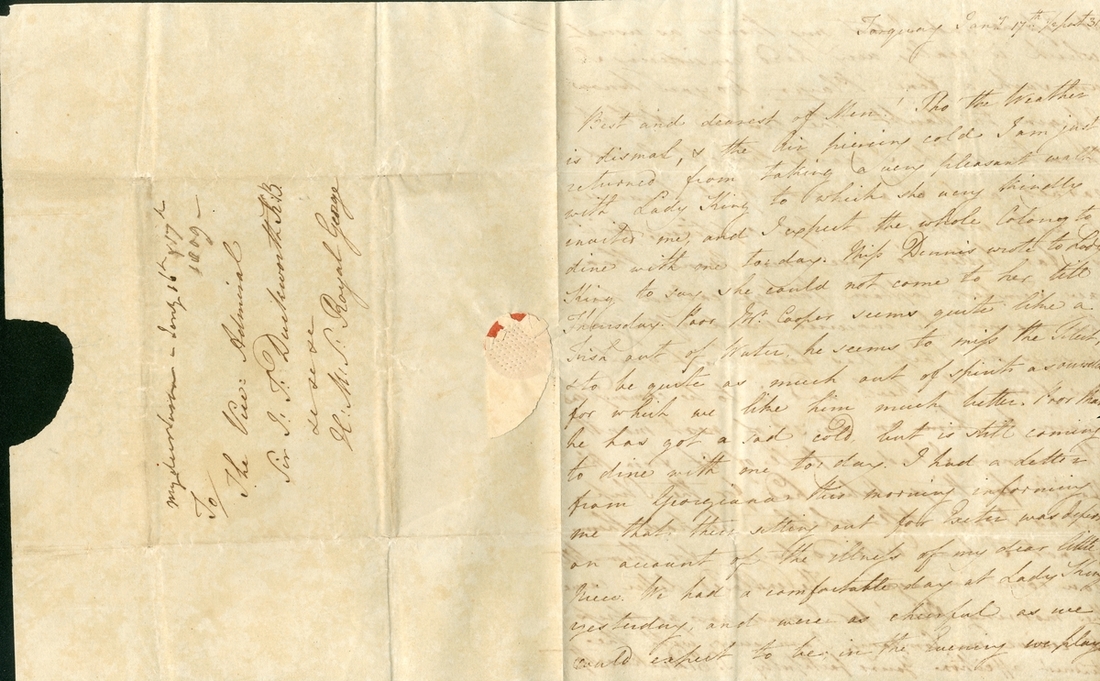 my dearest woman - Jany 16th & 17th
1809 -
To/
The Vice: Admiral
Sir J: T: Duckworth K:B
&c &c &c
H: M: S: Royal George
Torquay Jany 17th
Best and dearest of Men! Tho the Weather
is dismal, & the Air piercing cold I am just
returned from taking a very pleasant walk
with Lady King to which she very friendly
invited me, and I expect the whole Colony to
dine with me to day. Miss Dennis wrote to Lady
King to say she could not come to her till
Thursday. Poor Mr Cooper seems quite like a
Fish out of Water he seems to miss the Fleet,
& to be quite as much out of spirits as ourselves
for which we like him much better. Poor Man
he has got a sad cold, but is still coming
to dine with me to day. I had a letter
from Georgiana this morning informing
me that their setting out for Exeter was
on account of the illness of my dear little
Niece. We had a comfortable day at Lady Kings
yesterday and were as cheerful as we
could expect to be in the Evening we play